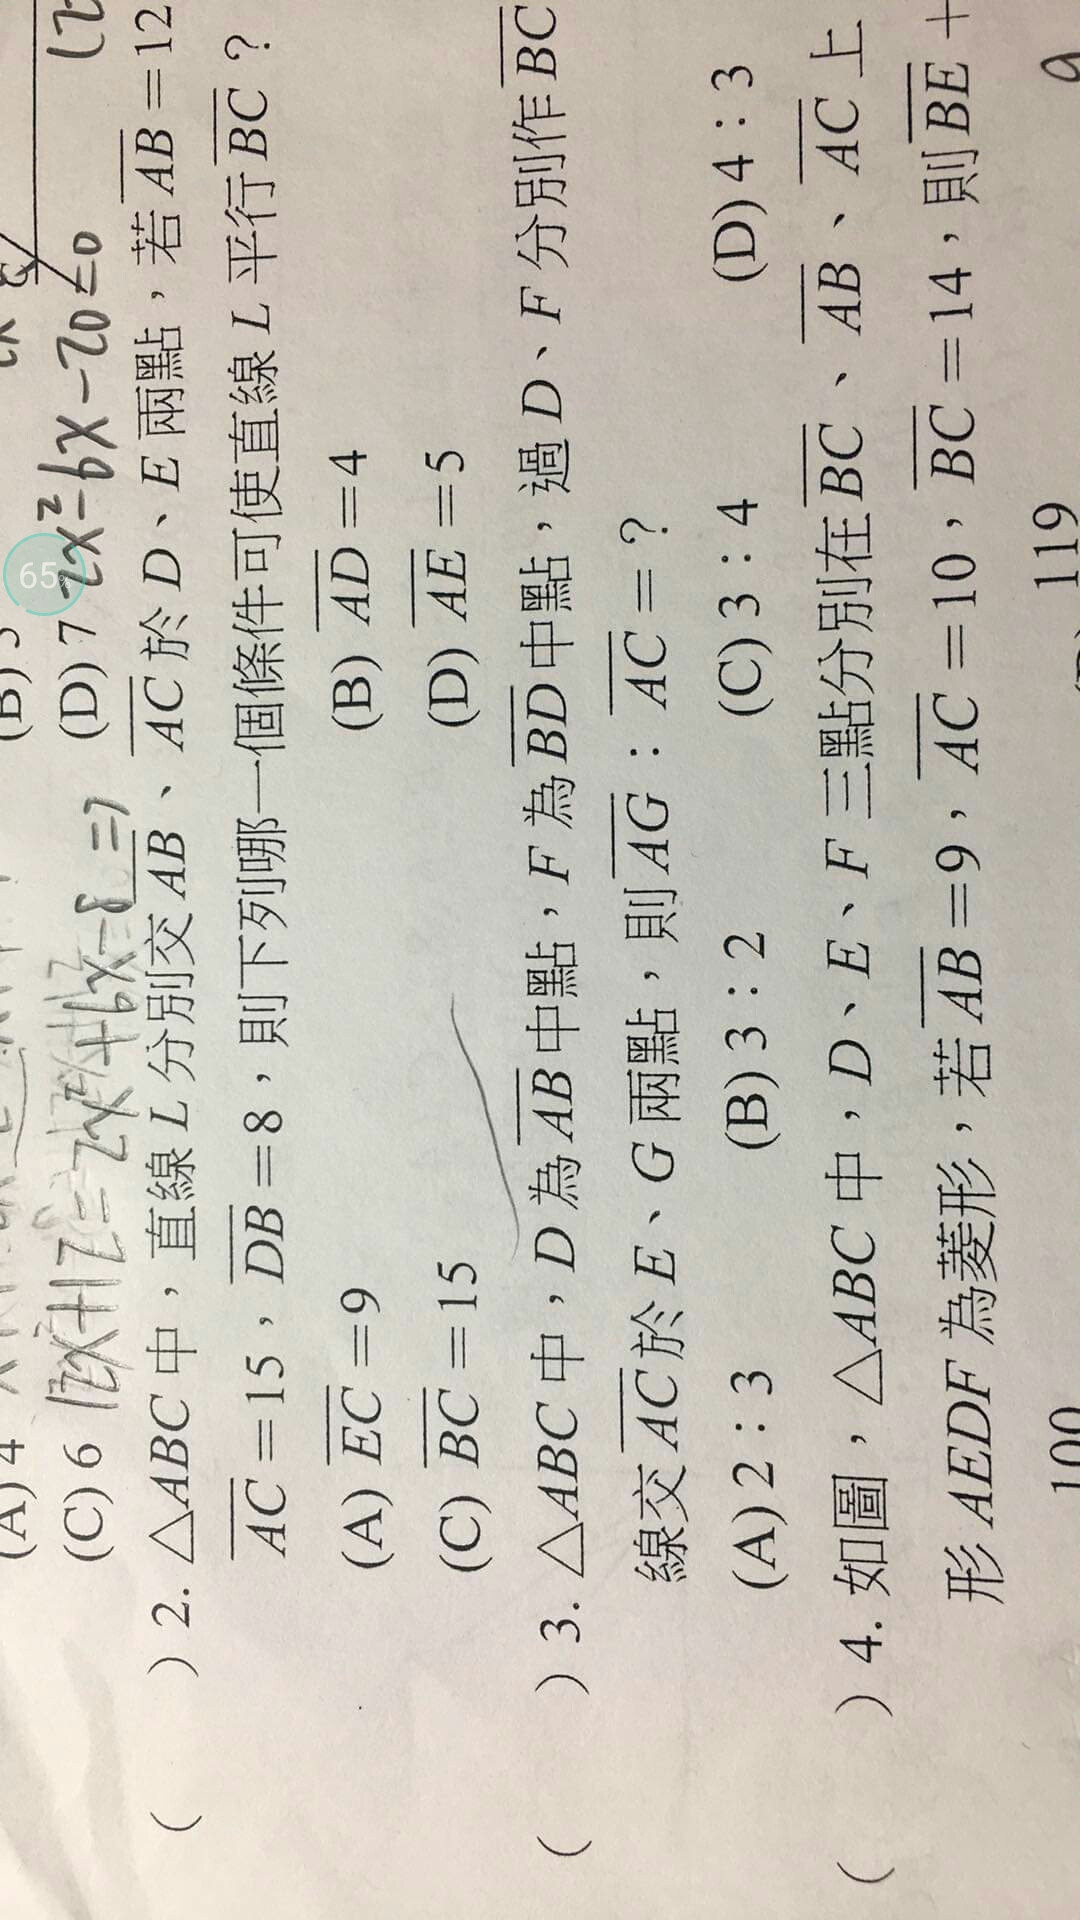 (A) 4
(C) 6
(D) 7
2x²-6x-20=0
65
( ) 2. △ABC 中，直線 L 分別交 AB、AC 於 D、E 兩點，若 AB=12
AC=15，DB=8，則下列哪一個條件可使直線 L 平行 BC？
(A) EC=9 (B) AD=4
(C) BC=15 (D) AE=5
( ) 3. △ABC 中，D 為 AB 中點，F 為 BD 中點，過 D、F 分別作 BC
線交 AC 於 E、G 兩點，則 AG：AC=？
(A) 2：3 (B) 3：2 (C) 3：4 (D) 4：3
( ) 4. 如圖，△ABC 中，D、E、F 三點分別在 BC、AB、AC 上
形 AEDF 為菱形，若 AB=9，AC=10，BC=14，則 BE+
100
119